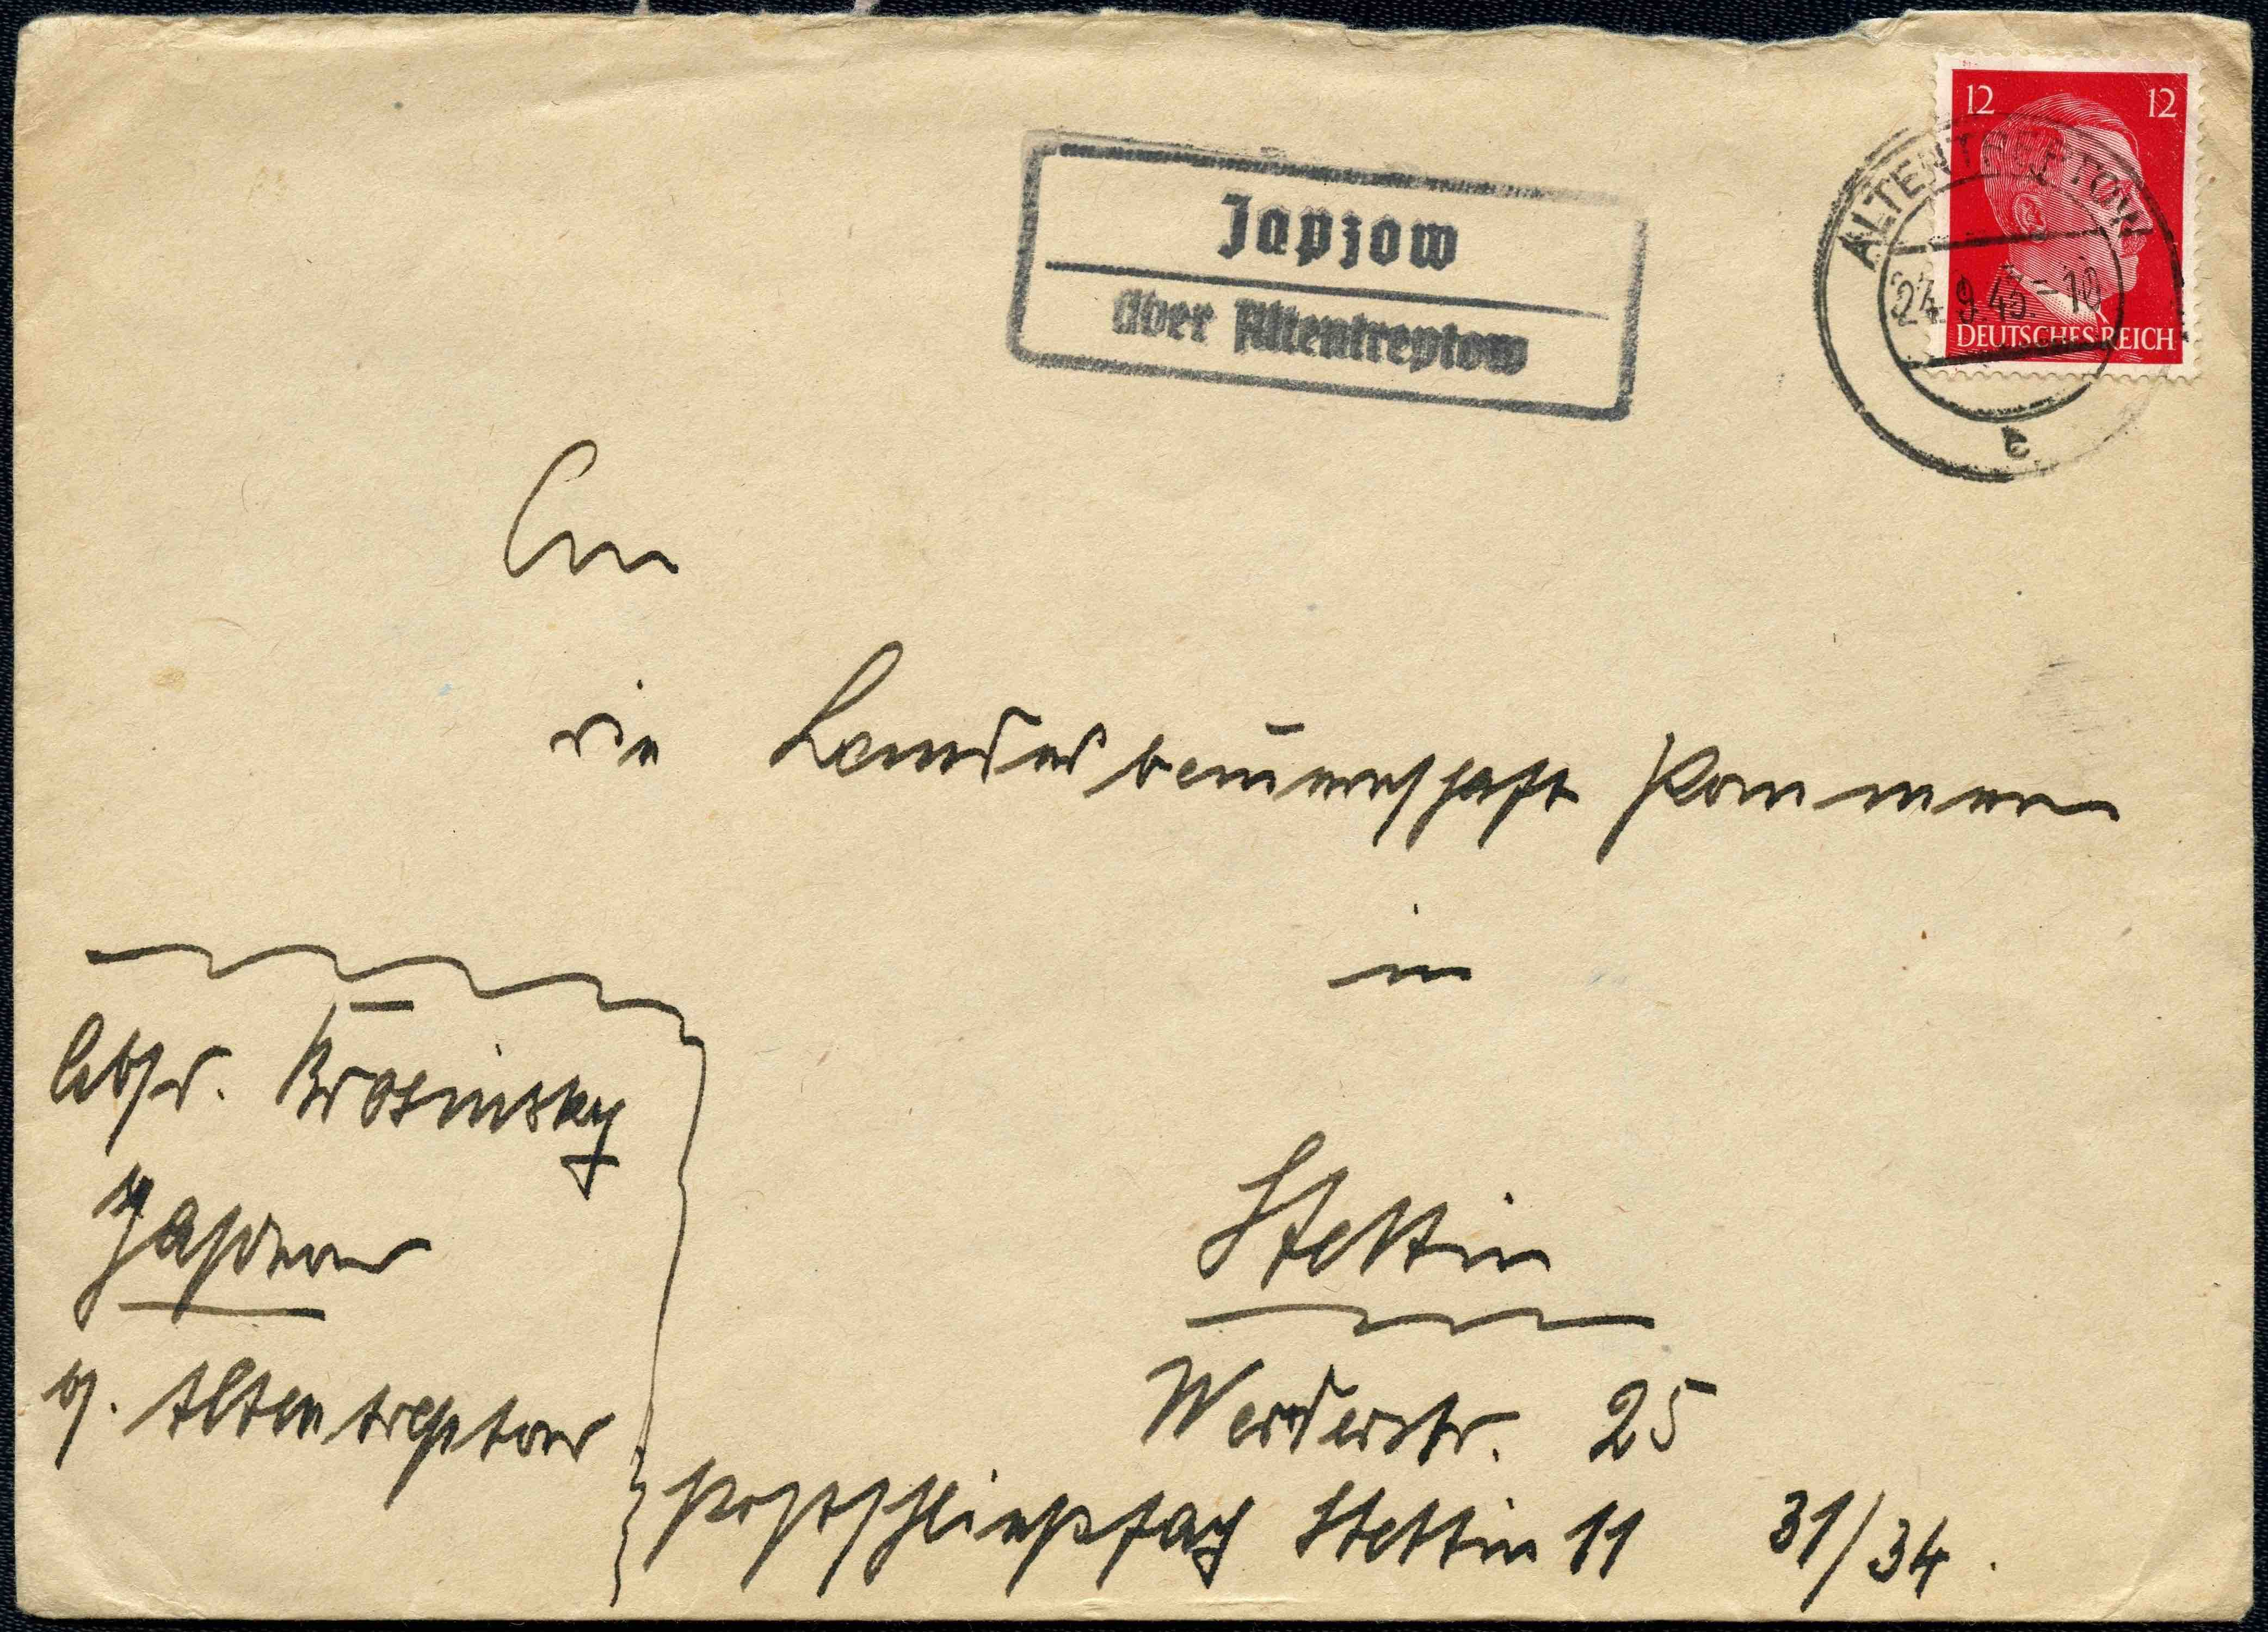 12 12
DEUTSCHES REICH
ALTENTREPTOW
24.9.43.-18
c
Japzow
über Altentreptow
An
die Landesbauernschaft Pommern
in
Stettin
Werderstr. 25
Postschließfach Stettin 11 31/34.
Abs. Brosinsky
Japzow
b. Altentreptow